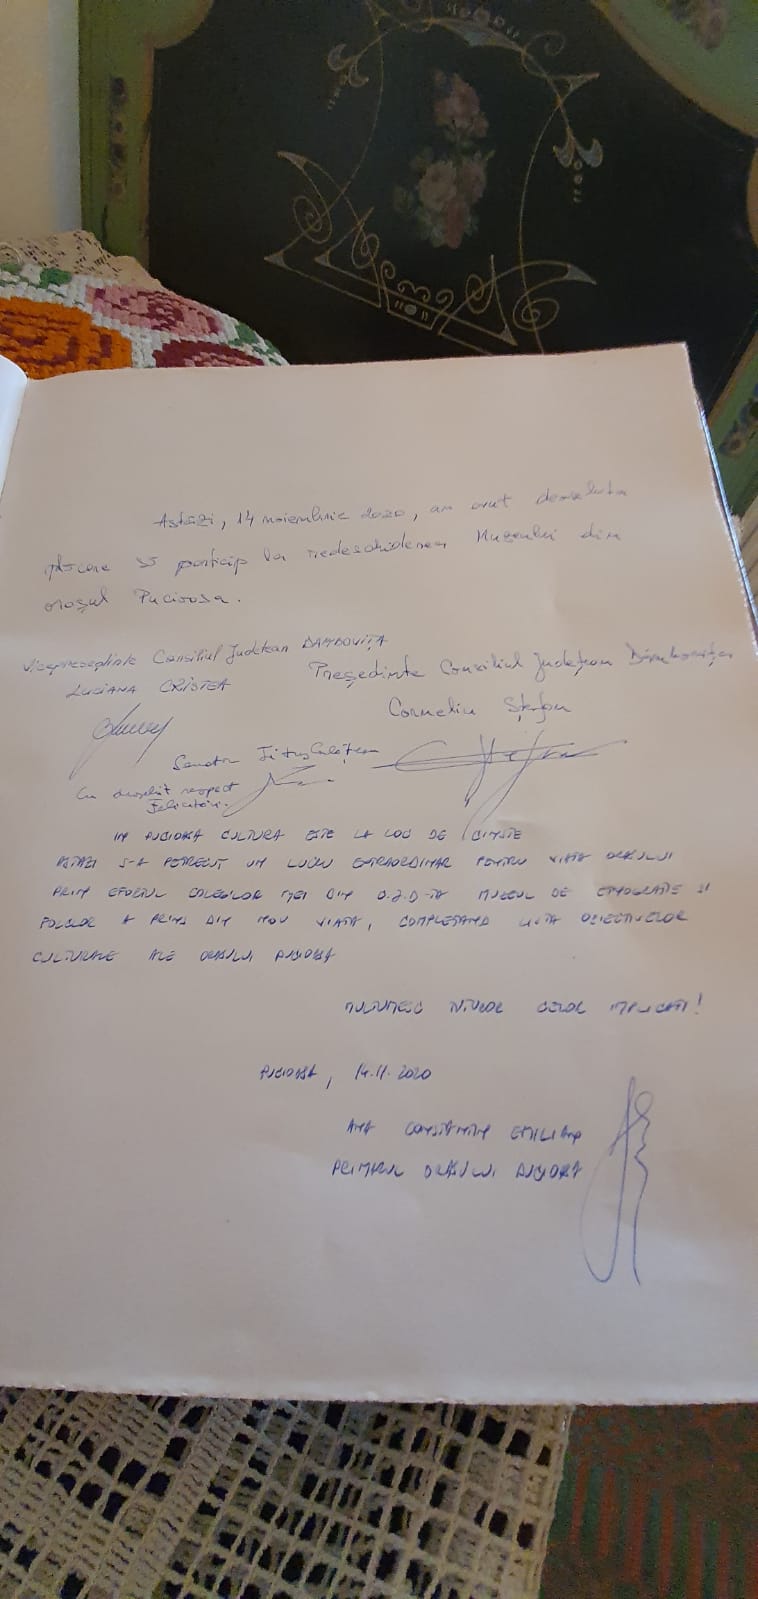 Astăzi, 14 noiembrie 2020, am avut deosebita
plăcere să particip la redeschiderea Muzeului din
orașul Pucioasa.
Vicepreședinte Consiliul Județean DÂMBOVIȚA
LUCIANA CRISTEA
Președinte Consiliul Județean Dâmbovița
Corneliu Ștefan
Senator Titus Corlățean
Cu deosebit respect
Felicitări.
IN PUCIOASA CULTURA ESTE LA LOC DE CINSTE
ASTAZI S-A PETRECUT UN LUCRU EXTRAORDINAR PENTRU VIATA ORASULUI
PRIN EFORTUL COLEGILOR MEI DIN MUZEUL DE ETNOGRAFIE SI
FOLCLOR A PRINS DIN NOU VIATA, COMPLETAND LISTA OBIECTIVELOR
CULTURALE ALE ORASULUI PUCIOASA
MULTUMESC TUTUROR CELOR IMPLICATI!
PUCIOASA, 14.11.2020
ANA CONSTANTIN EMILIAN
PRIMARUL ORASULUI PUCIOASA